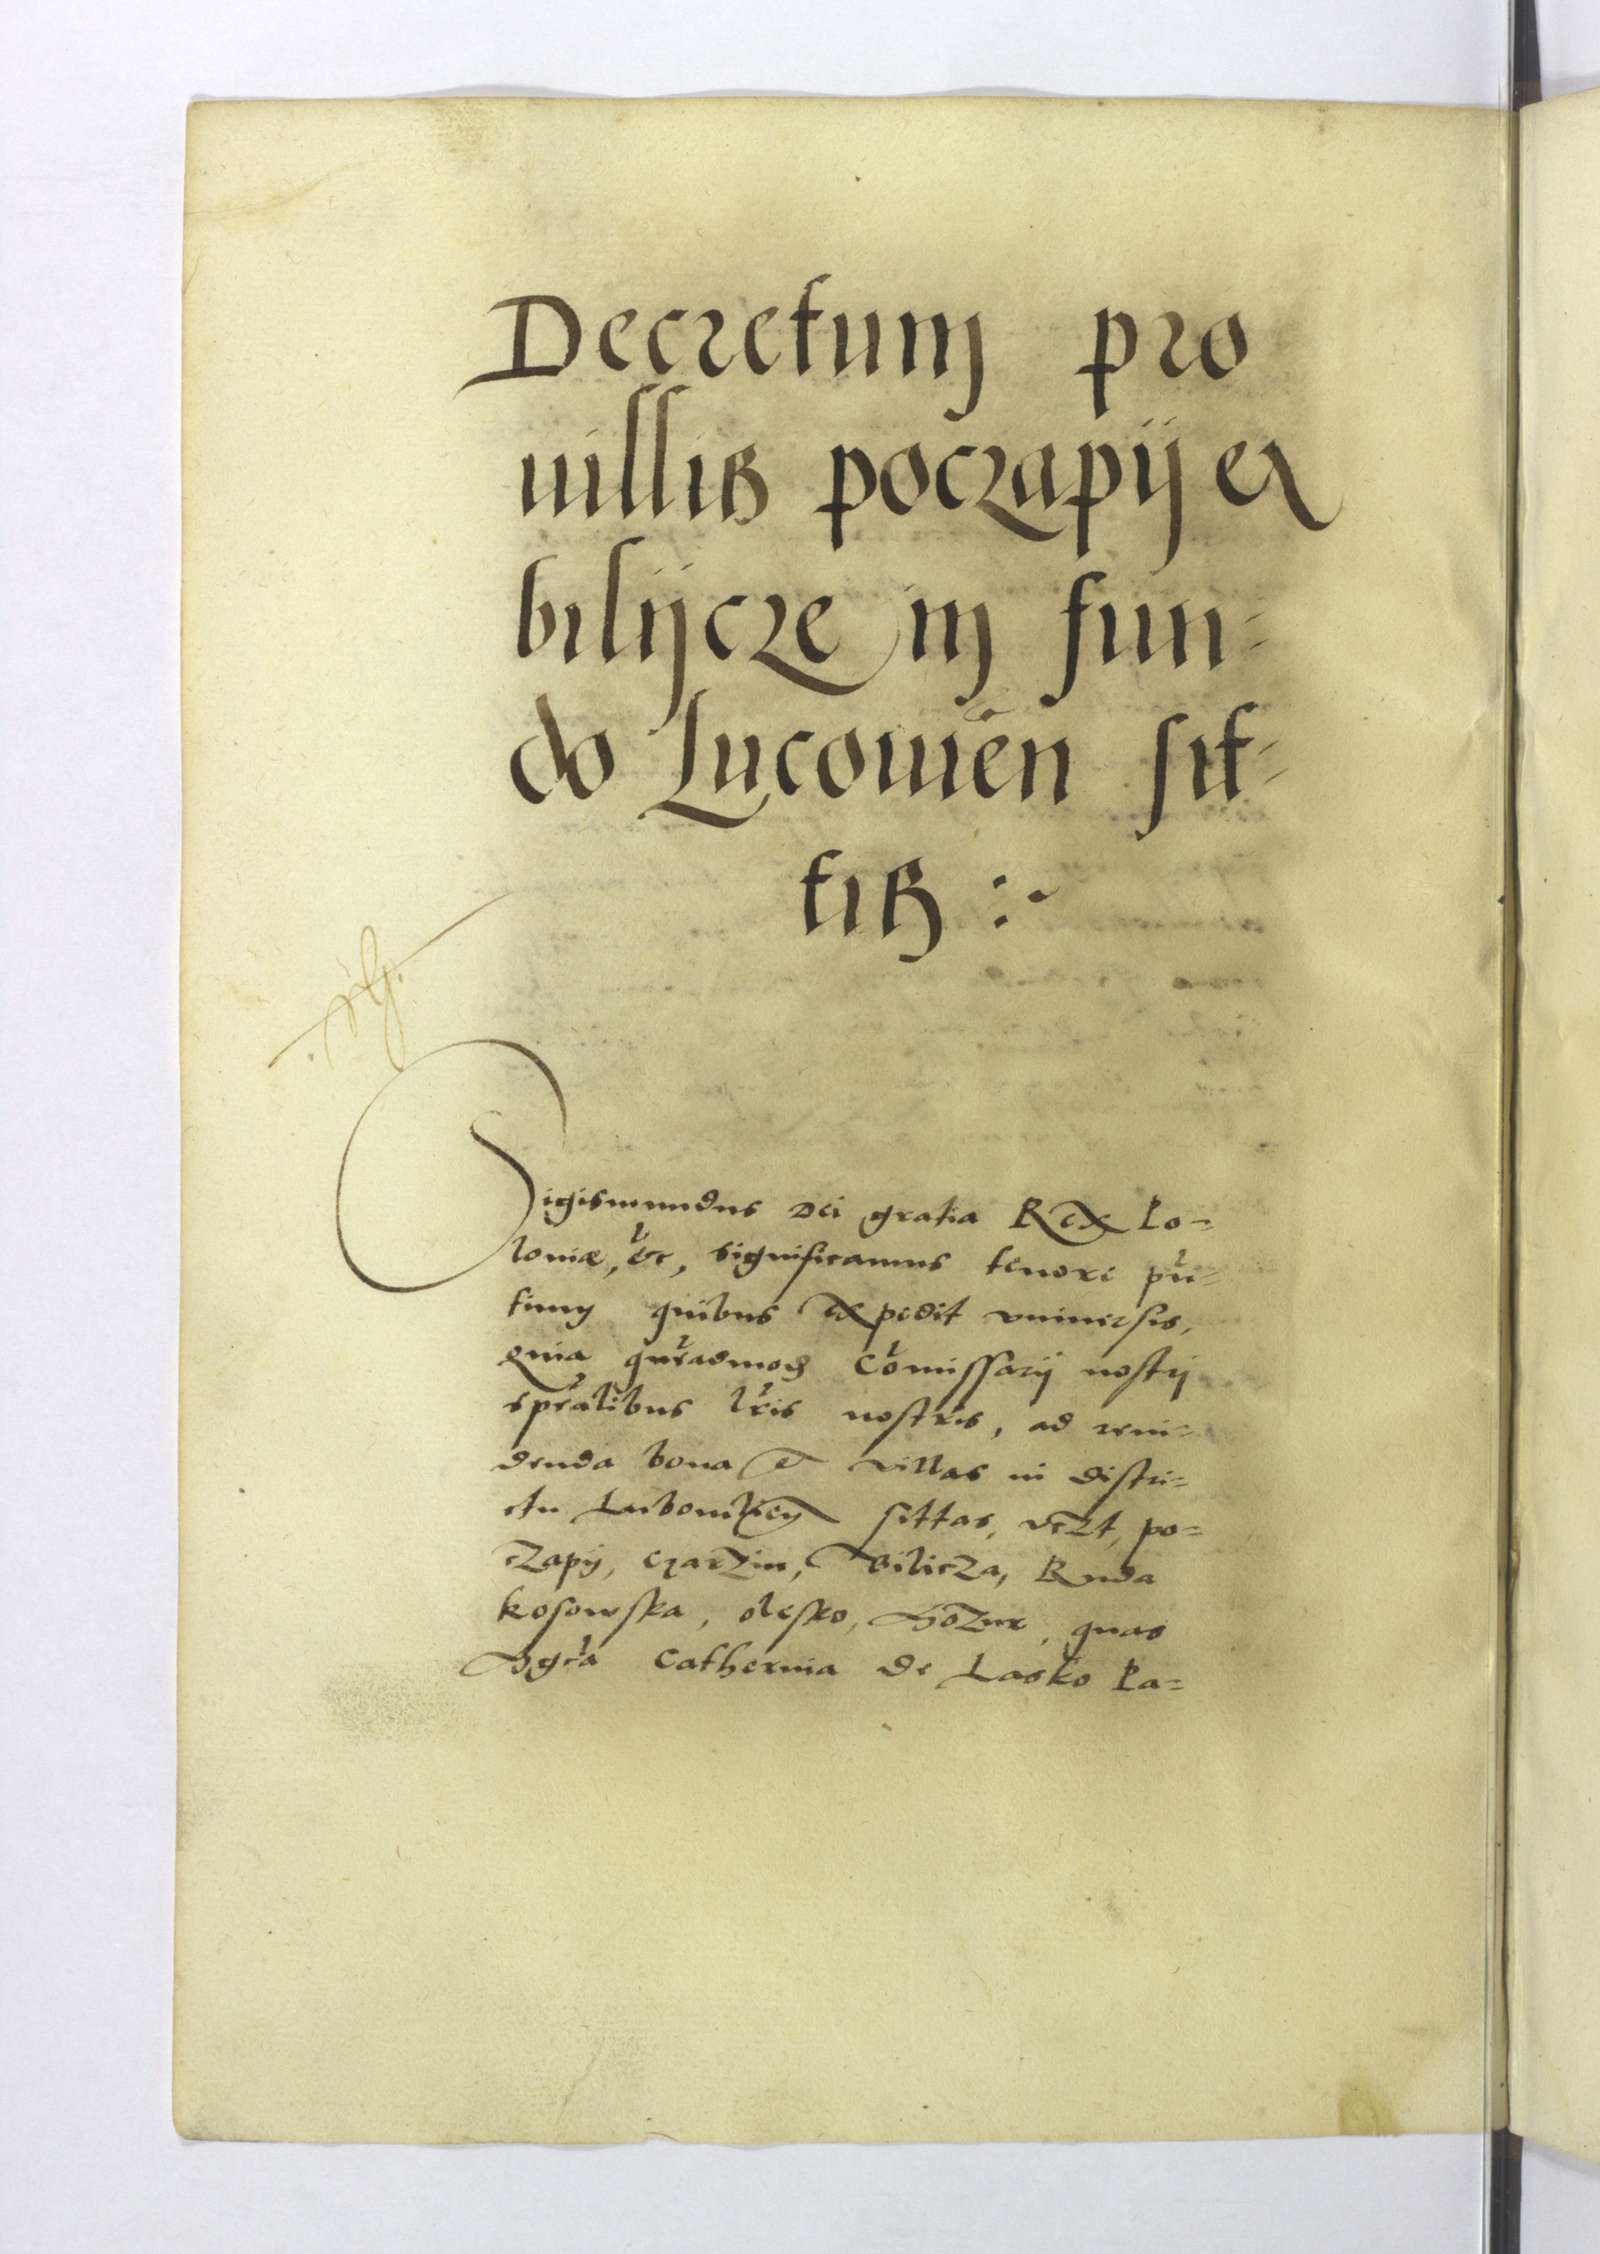 Decretum pro
uillis poczapij ex
bilijcze in fun-
do Lucouien̄ sit-
tis :~
Sigismundus Dei gratia Rex Po-
loniæ, &c, significamus tenore pñ-
tium quibus expedit vniuersis,
quia quẽadmod Com̃issarij nostri
sp̃alibus lr̃is nostris, ad reui-
denda bona et villas in distri-
ctu sittas, vczt, po-
czapij, czarzin, Bilicza, Ruda
kosowska, olesko, quas
Mgca Catherina de Lasko Pa-